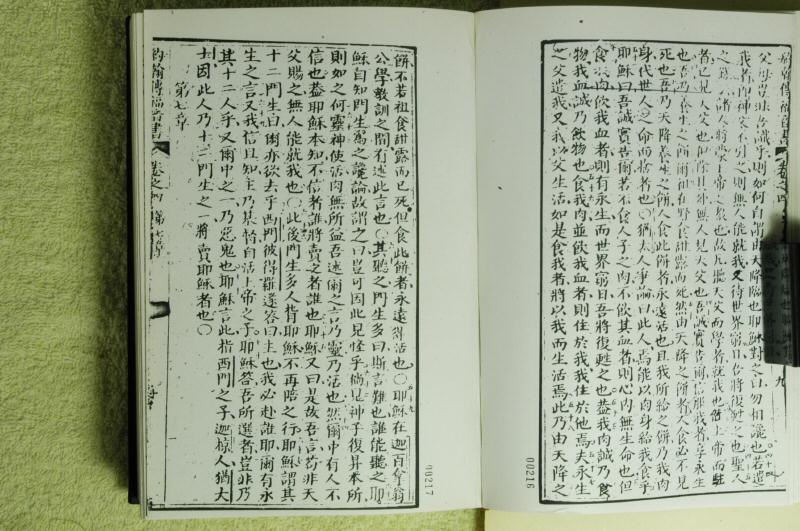 父母豈非吾識乎則如何自謂由天降臨也耶穌對之曰勿相譏也若遣
我者神父不引之則無人能就我又待世界窮日吾將復甦之也聖人
之錄諸人將蒙上帝之教也故凡聽天父而學者就我也惟上帝而駐
者已見天父也但除其外無人見天父也吾誠實告爾信服我者享永生
也吾乃養生之餅爾祖在野食甜露而死然由天降之餅者人食必不見
死也吾乃天降養生之餅人食此餅者永遠活也且我所給之餅乃我肉
身代世人之命而捨者也○猶太人爭論曰此人焉能以肉身給我食
耶穌曰吾誠實告爾若不食人子之肉不飲其血者則心內無生命也但
食我肉飲我血者則有永生而世界窮日吾將復甦之也蓋我肉誠乃食
物我血誠乃飲物也食我肉並飲我血者則住於我我住於他焉夫永生
之父遣我又我以父生活如是食我者將以我而生活焉此乃由天降之
00216
餅不若祖食甜露而已死但食此餅者永遠得活也○耶穌在迦百拿翁
公學教訓之間有述此言也○其聽之門生多曰斯言難也誰能聽之耶
穌自知門生為之譏論故謂之曰豈可因此見怪乎倘見神子復昇本所
則如之何靈神使活肉無所益吾述爾之言乃靈乃活也然爾中有人不
信也蓋耶穌本知不信者誰將賣之者誰也耶穌又曰是故吾言苟非天
父賜之無人能就我也○此後門生多人背耶穌不再陪之行耶穌謂其
十二門生曰爾亦欲去乎西門彼得羅遂答曰主也我必赴誰耶爾有永
生之言又我信且知主乃基督自活上帝之子耶穌答吾所選者豈非乃
其十二人乎又爾中之一乃惡鬼也耶穌言此指西門之子迦椋人猶大
士因此人乃十二門生之一將賣耶穌者也○
第七章
約翰傳福音書 卷之四 第七章
00217